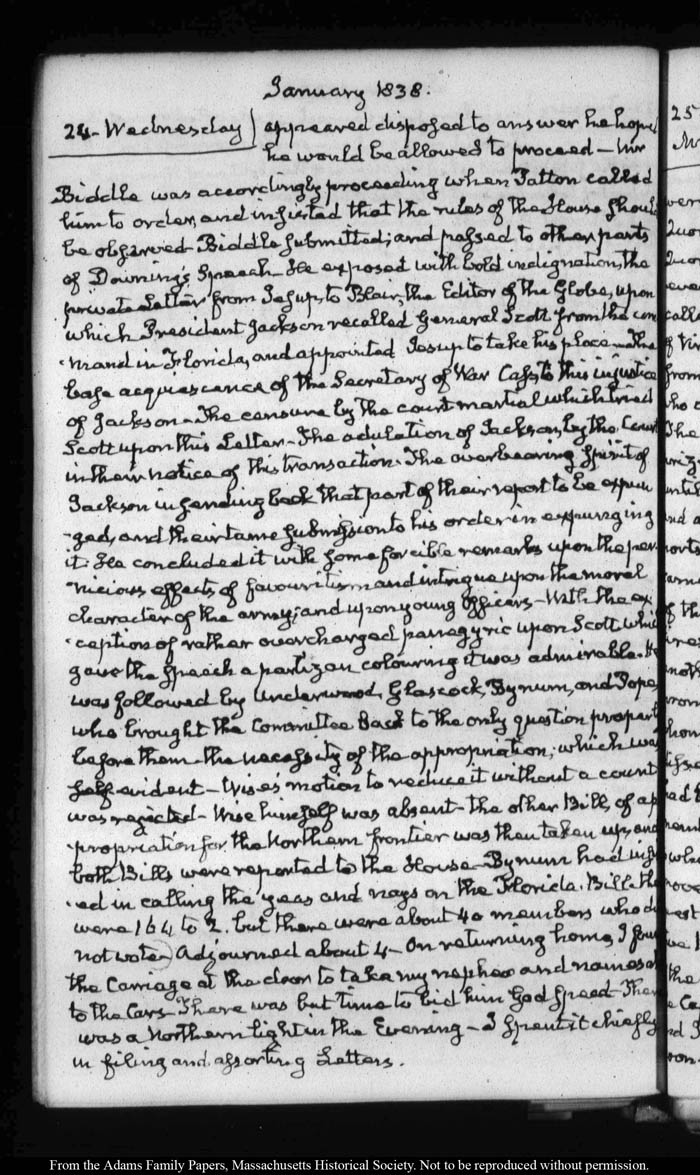 January 1838.
24. Wednesday) appeared disposed to answer he hope
he would be allowed to proceed — Mr
Biddle was accordingly proceeding when Patton called
him to order, and insisted that the rules of the House shoul
be observed. Biddle submitted; and passed to other parts
of Downing's Speech. He exposed with bold indignation, the
private Letter from Jesup, to Blair, the Editor of the Globe, upon
which President Jackson recalled General Scott from the com
-mand in Florida, and appointed Jesup to take his place — The
base acquiescence of the Secretary of War Cass, to this injustice
of Jackson — The censure by the court martial which tried
Scott upon this Letter — The adulation of Jackson, by the Court
in their notice of this transaction. The overbearing Spirit of
Jackson in sending back that part of their report to be expun
-ged, and their tame submission to his order in expunging
it. He concluded it with some forcible remarks upon the per
-nicious effects of favouritism and intrigue upon the moral
character of the army; and upon young Officers — With the ex
-ception of rather overcharged panegyric upon Scott whi
gave the speech a partizan colouring it was admirable. He
was followed by Underwood, Glascock, Bynum, and Pope,
who brought the Committee Back to the only question properl
before them — the necessity of the appropriation; which was
self-evident — Wise's motion to reduce it without a count
was rejected — Wise himself was absent — the other Bill, of ap
-propriation for the Northern frontier was then taken up, and
both Bills were reported to the House — Bynum had insi
-ed in calling the yeas and nays on the Florida. Bill th
were 164 to 2. but there were about 40 members who di
not vote. Adjourned about 4 — On returning home, I foun
the Carriage at the door to take my nephew and namesa
to the Cars — There was but time to bid him God Speed — There
was a Northern light in the Evening — I spent it chiefly
in filing and assorting Letters.
25
From the Adams Family Papers, Massachusetts Historical Society. Not to be reproduced without permission.